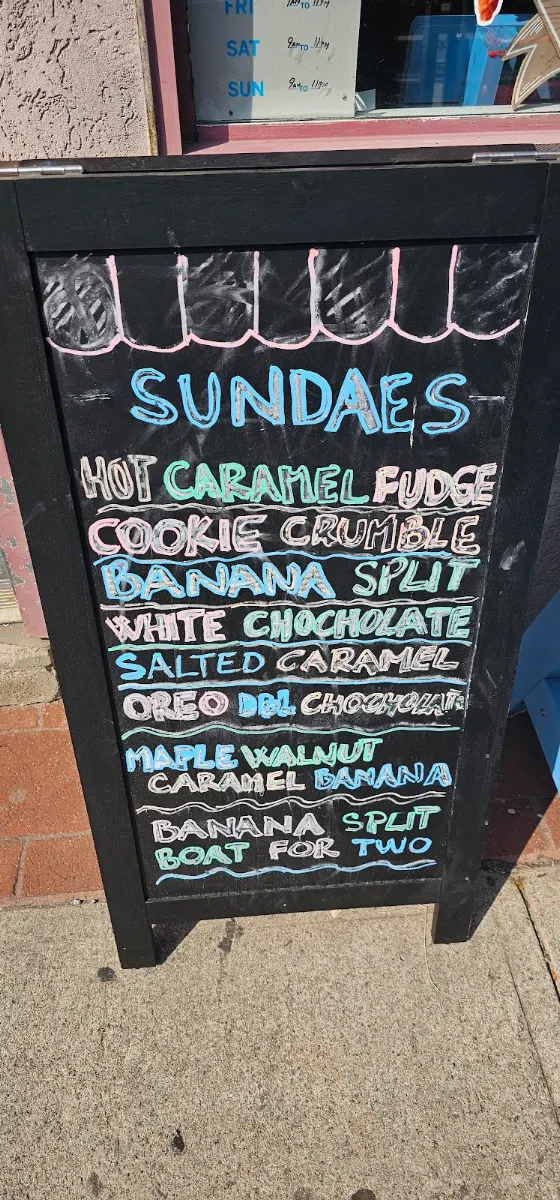 FRI 9AM TO 11PM
SAT 9AM TO 11PM
SUN 9AM TO 11PM
SUNDAES
HOT CARAMEL FUDGE
COOKIE CRUMBLE
BANANA SPLIT
WHITE CHOCHOLATE
SALTED CARAMEL
OREO DBL CHOCHOLATE
MAPLE WALNUT
CARAMEL BANANA
BANANA SPLIT
BOAT FOR TWO